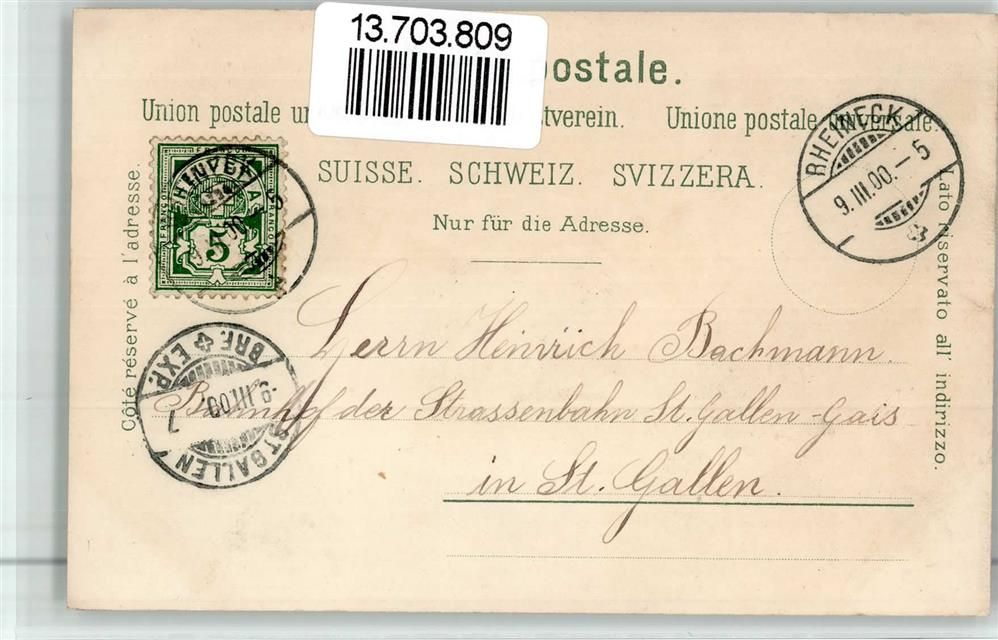 13.703.809
postale.
Union postale un tverein. Unione postale universale.
SUISSE. SCHWEIZ. SVIZZERA.
Nur für die Adresse.
Côté réservé à l'adresse.
Lato riservato all' indirizzo.
FRANCO
5
RHEINECK
9.III.00.-5
Herrn Heinrich Bachmann
Bahnhof der Strassenbahn St. Gallen-Gais
in St. Gallen.
ST. GALLEN
BRF. EXP.
9.III.00.
7